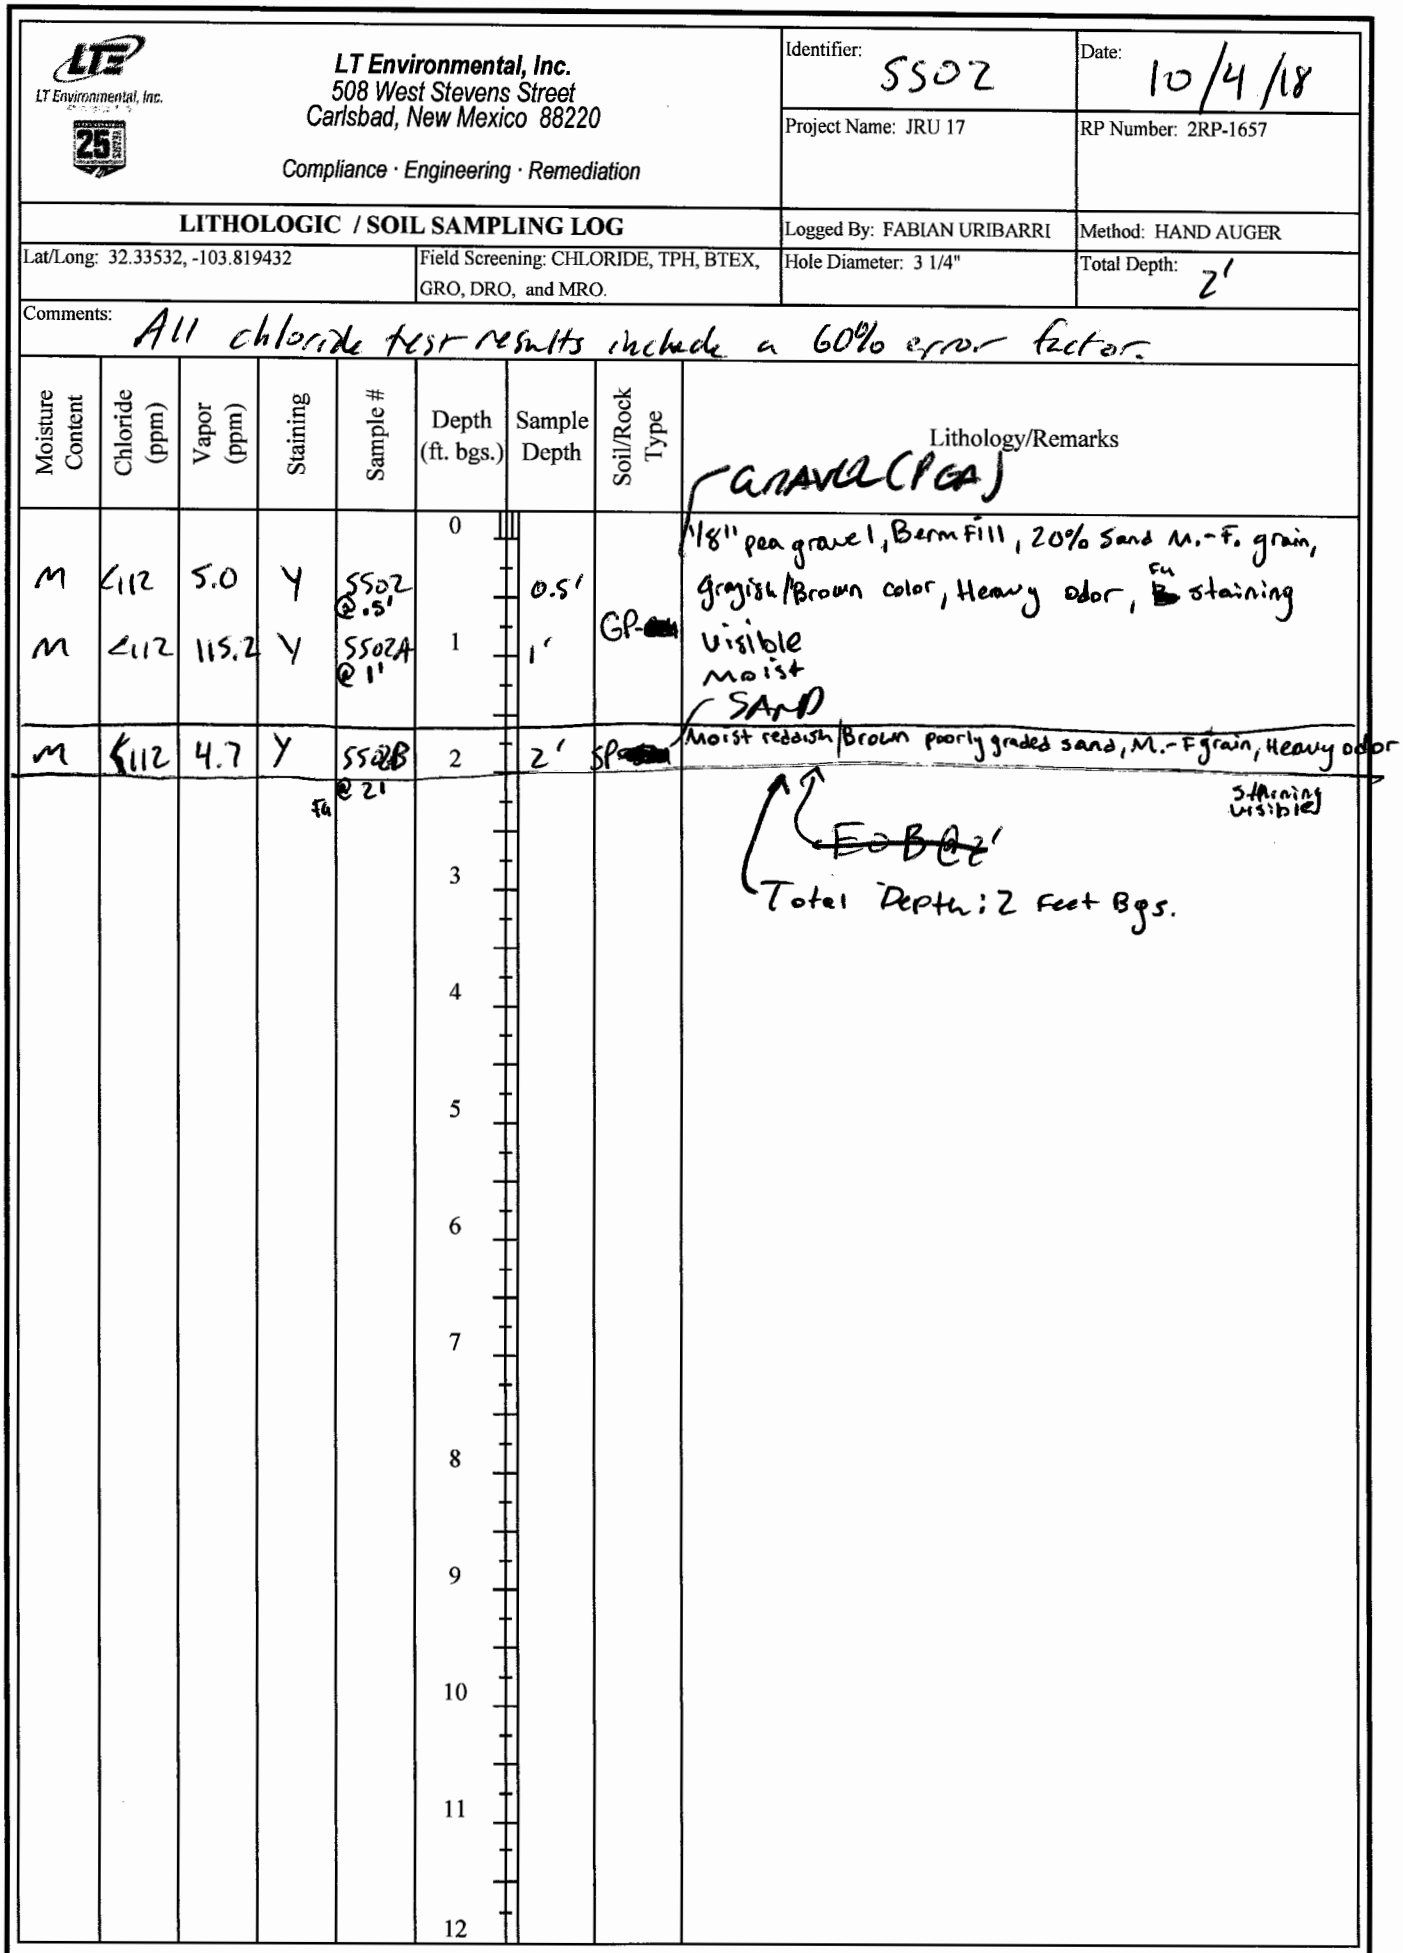 LTE
LT Environmental, Inc.
25 YEARS
LT Environmental, Inc.
508 West Stevens Street
Carlsbad, New Mexico 88220
Compliance · Engineering · Remediation
Identifier: SS02
Date: 10/4/18
Project Name: JRU 17
RP Number: 2RP-1657
LITHOLOGIC / SOIL SAMPLING LOG
Logged By: FABIAN URIBARRI
Method: HAND AUGER
Lat/Long: 32.33532, -103.819432
Field Screening: CHLORIDE, TPH, BTEX,
GRO, DRO, and MRO.
Hole Diameter: 3 1/4"
Total Depth: 2'
Comments: All chloride test results include a 60% error factor.
Moisture Content
Chloride (ppm)
Vapor (ppm)
Staining
Sample #
Depth (ft. bgs.)
Sample Depth
Soil/Rock Type
Lithology/Remarks
GRAVEL (PEA)
0
1/8" pea gravel, Berm Fill, 20% Sand M.-F. grain,
M <112 5.0 Y SS02 @ .5' 0.5' grayish/Brown color, Heavy odor, FU staining
GP-
M <112 115.2 Y SS02A @ 1' 1 1' visible
Moist
SAND
M <112 4.7 Y SS02B @ 2' 2 2' SP Moist reddish/Brown poorly graded sand, M.-F grain, Heavy odor
staining visible
FU
EOB @ 2'
3
Total Depth: 2 Feet Bgs.
4
5
6
7
8
9
10
11
12